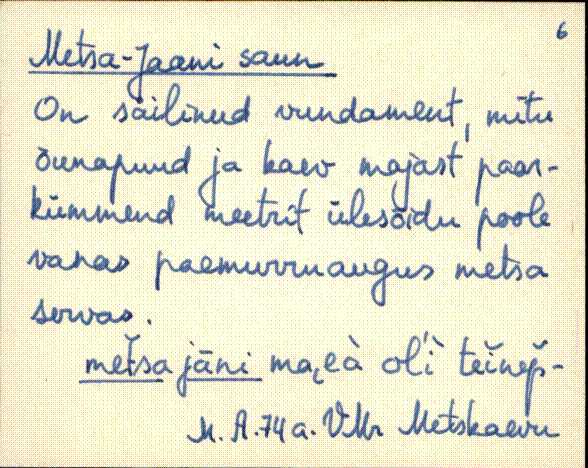 6
Metsa-Jaani saun
On säilinud vundament, mitu
õunapuud ja kaev majast paar-
kümmend meetrit ülesõidu poole
vanas paemurruaugus metsa
servas.
metsa jāni ol'i
M. A. 74 a. VMr Metskaevu